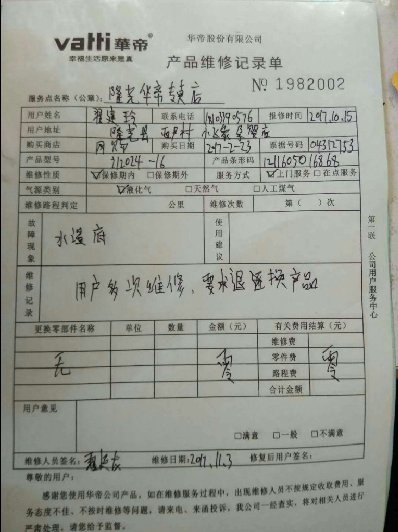 vatti 華帝
幸福生活原来是真
华帝股份有限公司
产品维修记录单
№ 1982002
服务点名称(公章): 隆尧华帝专卖店
用户姓名 联系电话 报修时间 2017.10.15
用户地址 隆尧县
购买商店 购买日期 2017-2-23 票据号码 04312753
产品型号 产品条形码
维修性质 ☑保修期内 □保修期外 服务方式 ☑上门服务 □在点服务
气源类别 ☑液化气 □天然气 □人工煤气
维修路程判定 公里 维修次数 第( )次
故障现象 水温高 使用建议
维修记录 用户多次维修、要求退还换产品
第一联 公司用户服务中心
更换零部件名称 单位 数量 金额(元) 有关费用结算(元)
维修费
无 零 零件费 零
路程费
合计金额
用户意见
□满意 □一般 □不满意
维修人员签名: 维修日期: 2017.11.3 修复后用户签名:
尊敬的用户:
感谢您使用华帝公司产品,如在维修服务过程中,出现维修人员不按规定收取费用、服
务态度不佳、不按时维修等问题,请来电、来函投诉,我公司一经查实,将对相关人员进行
严肃处理。请您给予监督。